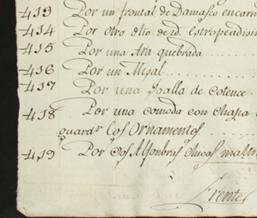 413 Por un frontal de Damasco encarn
414 Por otro dho de id. Estropeadisi
415 Por una Ara quebrada
416 Por un Misal
417 Por una Palla de cotence
418 Por una comoda con chapa
guardr. los Ornamentos
419 Por dos Alfonbras chicas maltr
Frente